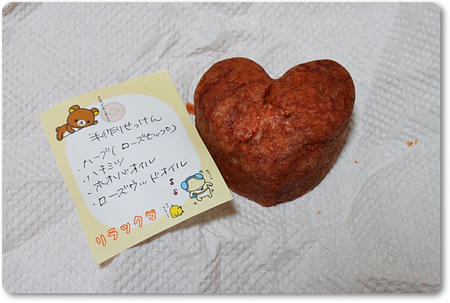 手作りせっけん
・ハーブ(ローズヒップ)
・ハチミツ
・ホホバオイル
・ローズウッドオイル
リラックマ